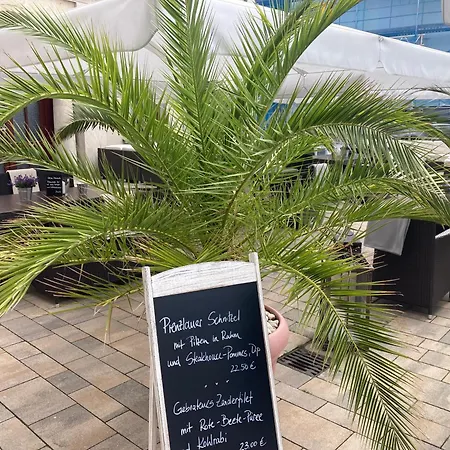 Prenzlauer Schnitzel
mit Pilzen in Rahm
und Steakhouse-Pommes, Dip
22.50€
Gebratenes Zanderfilet
mit Rote-Beete-Püree
und Kohlrabi 23.00€